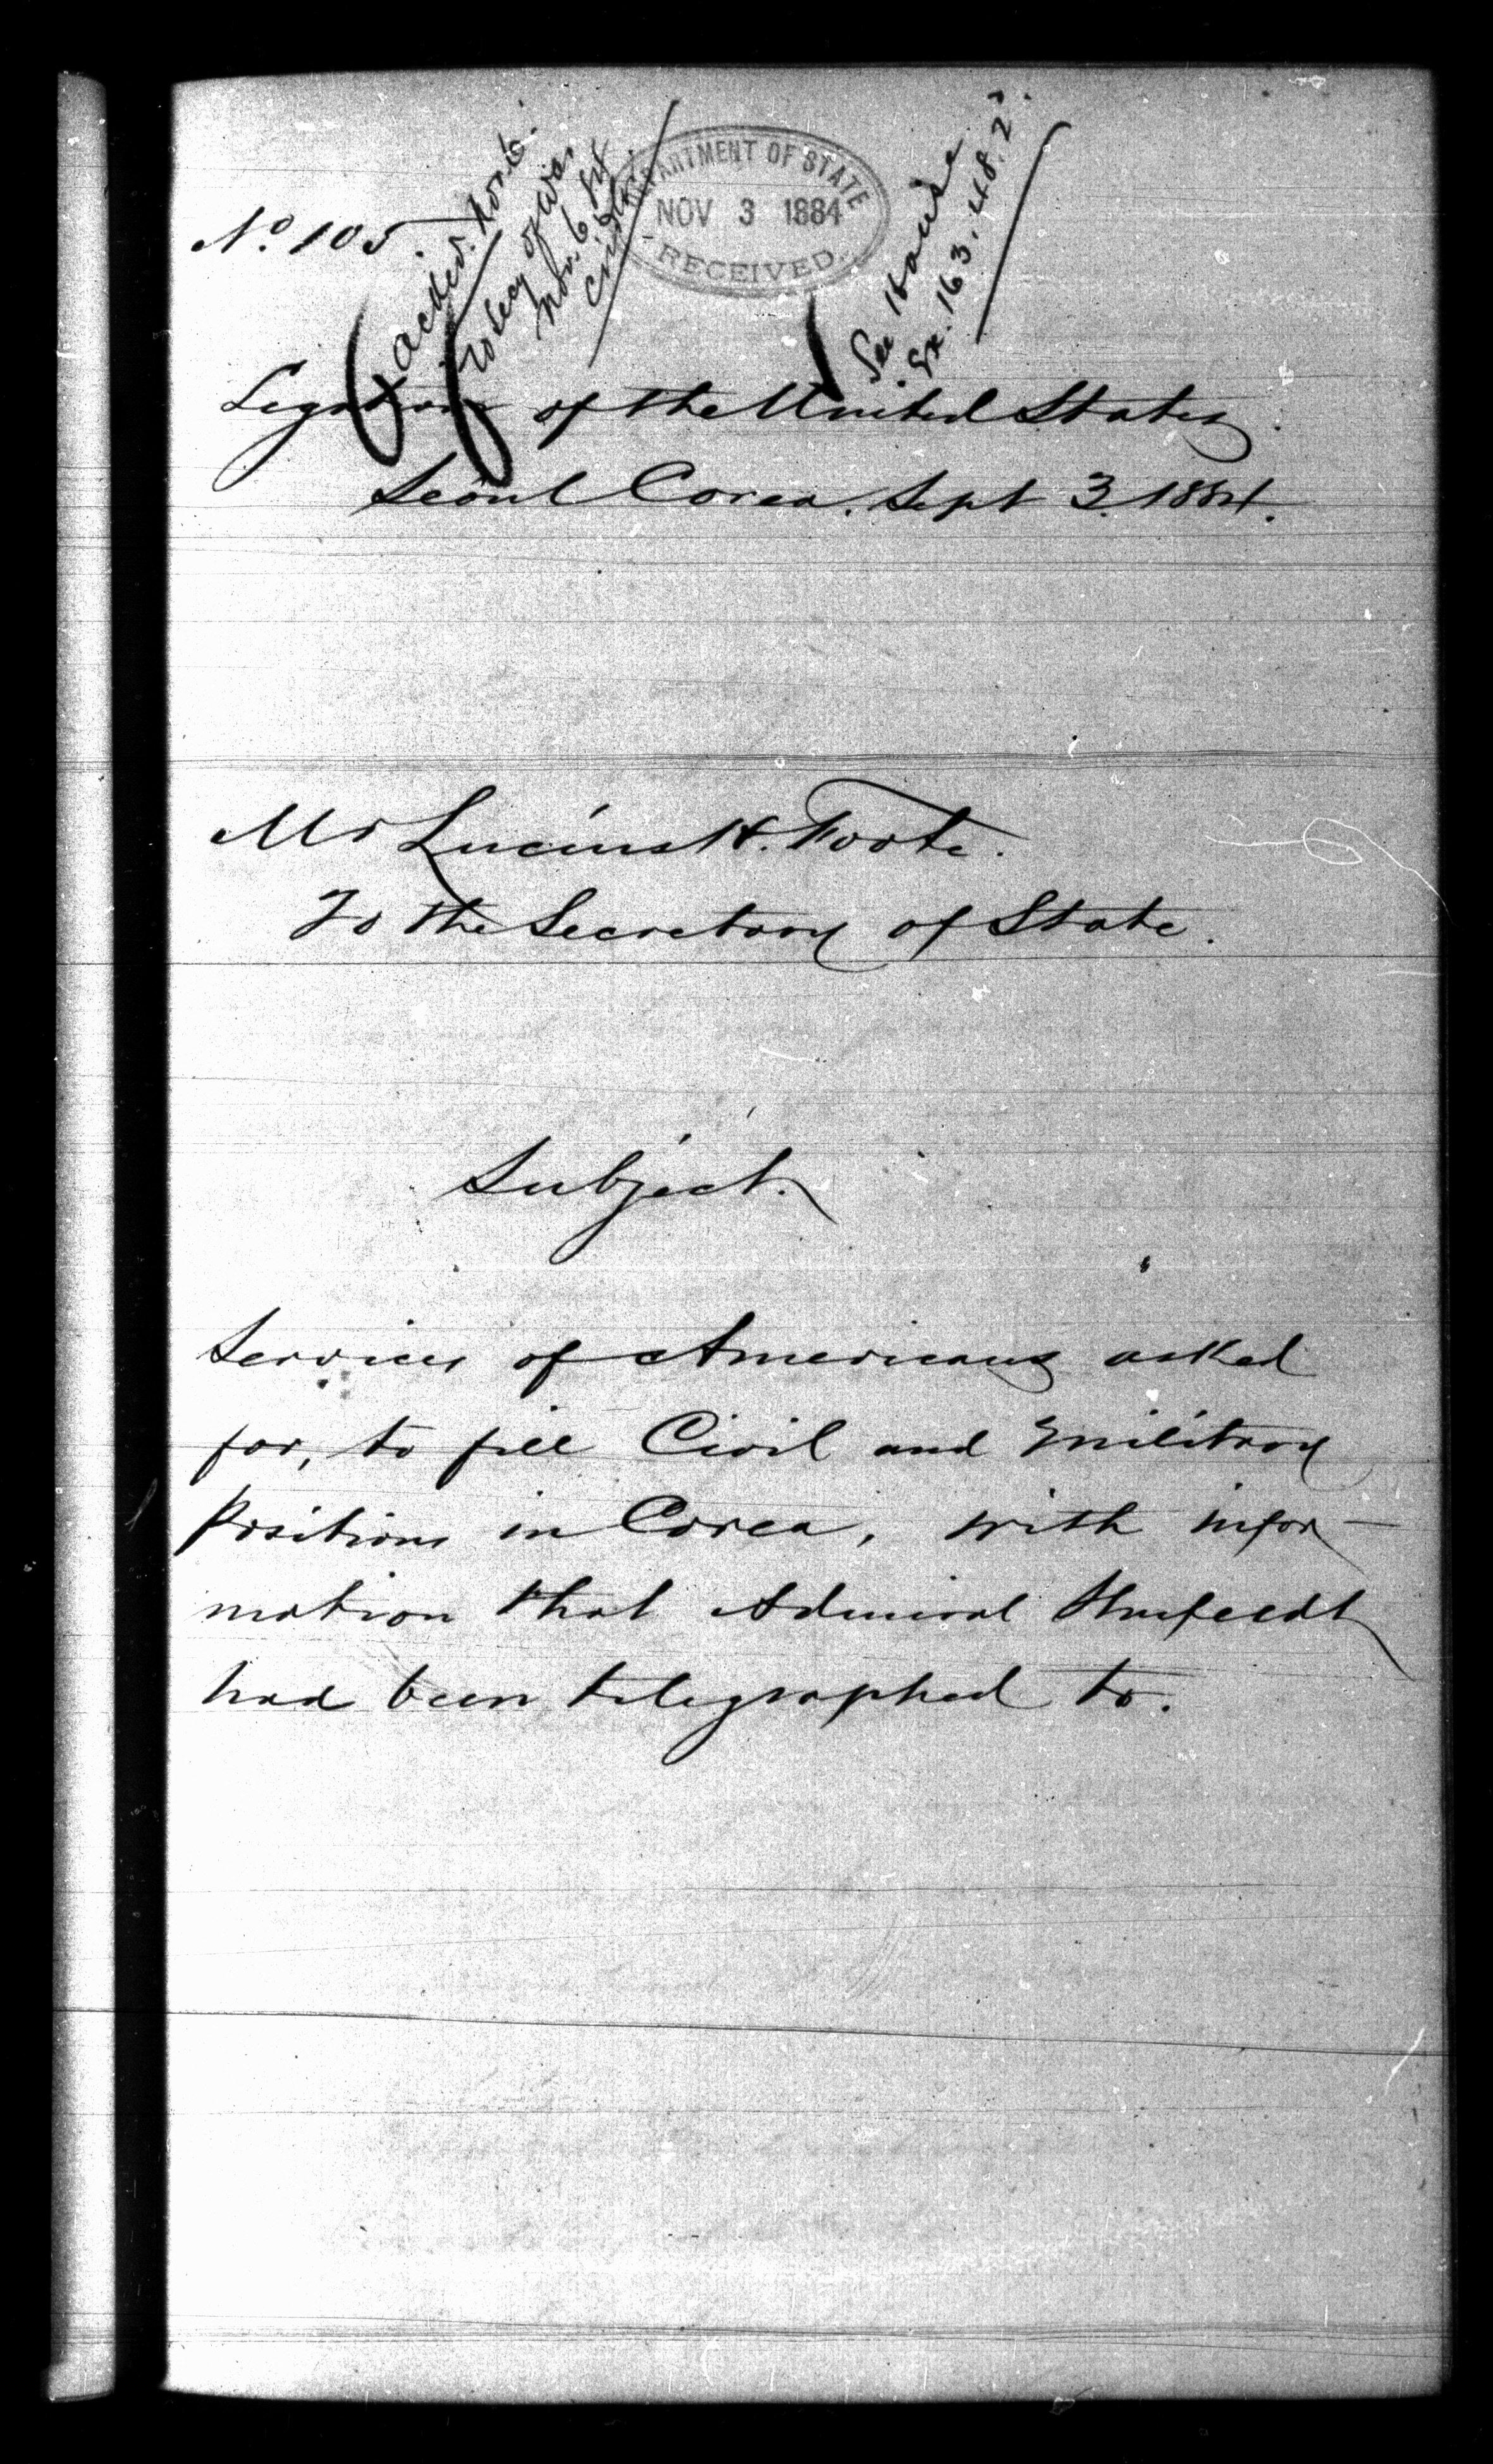 Nº 105
ackd. Nov. 6.
To Secy of War
Nov. 6 84
DEPARTMENT OF STATE
NOV 3 1884
RECEIVED
See House
Ex. 163. 48. 2d.
Legation of the United States
Seoul Corea. Sept 3. 1884.
Mr Lucius H. Foote.
To the Secretary of State.
Subject.
Services of Americans asked
for, to fill Civil and Military
positions in Corea, with infor-
mation that Admiral Shufeldt
had been telegraphed to.